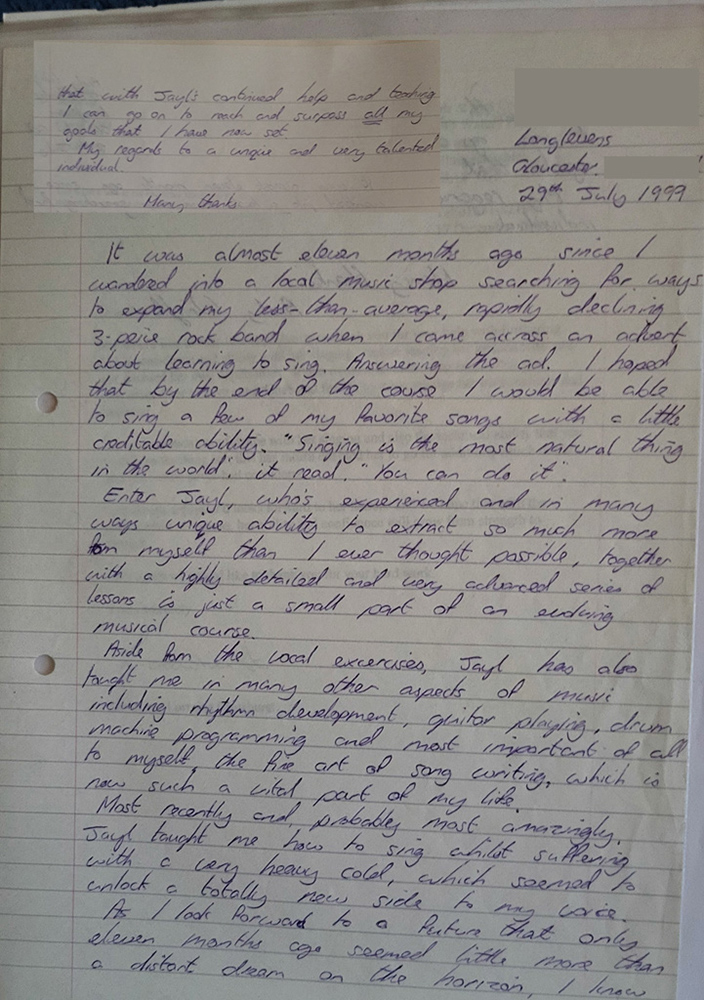 that with Jayl's continued help and teaching
I can go on to reach and surpass all my
goals that I have now set.
My regards to a unique and very talented
individual.
Many thanks
Longlevens
Gloucester.
29th July 1999
It was almost eleven months ago since I
wandred into a local music shop searching for ways
to expand my less-than-average, rapidly declining
3-peice rock band when I came accross an advert
about learning to sing. Answering the ad. I hoped
that by the end of the course I would be able
to sing a few of my favorite songs with a little
creditable ability. "Singing is the most natural thing
in the world", it read. "You can do it".
Enter Jayl, who's experienced and in many
ways unique ability to extract so much more
from myself than I ever thought possible, together
with a highly detailed and very advanced series of
lessons is just a small part of an evolving
musical course.
Aside from the vocal excercises, Jayl has also
taught me in many other aspects of music
including rhythm development, guitar playing, drum
machine programming and most important of all
to myself, the fine art of song writing, which is
now such a vital part of my life.
Most recently and, probably most amazingly,
Jayl taught me how to sing whilst suffering
with a very heavy cold, which seemed to
unlock a totally new side to my voice.
As I look forward to a future that only
eleven months ago seemed little more than
a distant dream on the horizon, I know